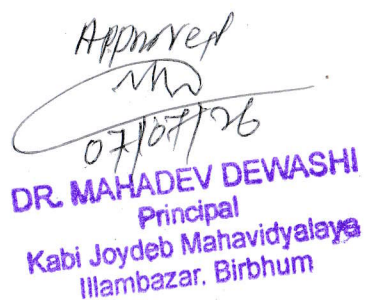 Approved
07/07/26
DR. MAHADEV DEWASHI
Principal
Kabi Joydeb Mahavidyalaya
Illambazar. Birbhum